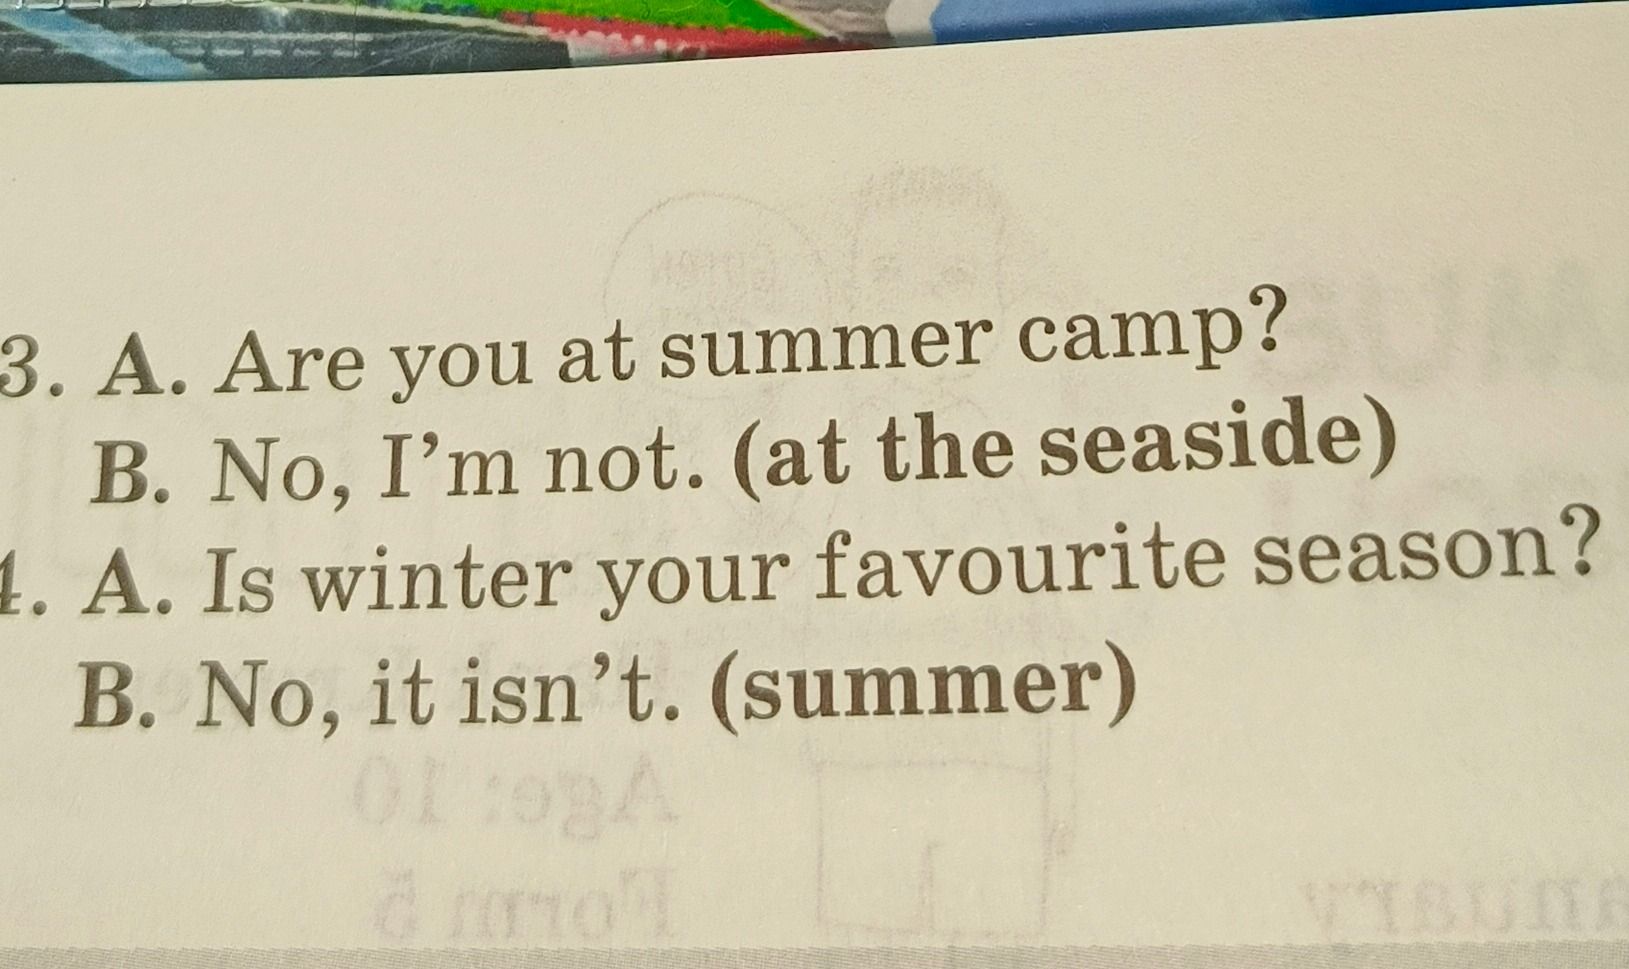 3. A. Are you at summer camp?
B. No, I'm not. (at the seaside)
4. A. Is winter your favourite season?
B. No, it isn't. (summer)
Age: 10
Form 5